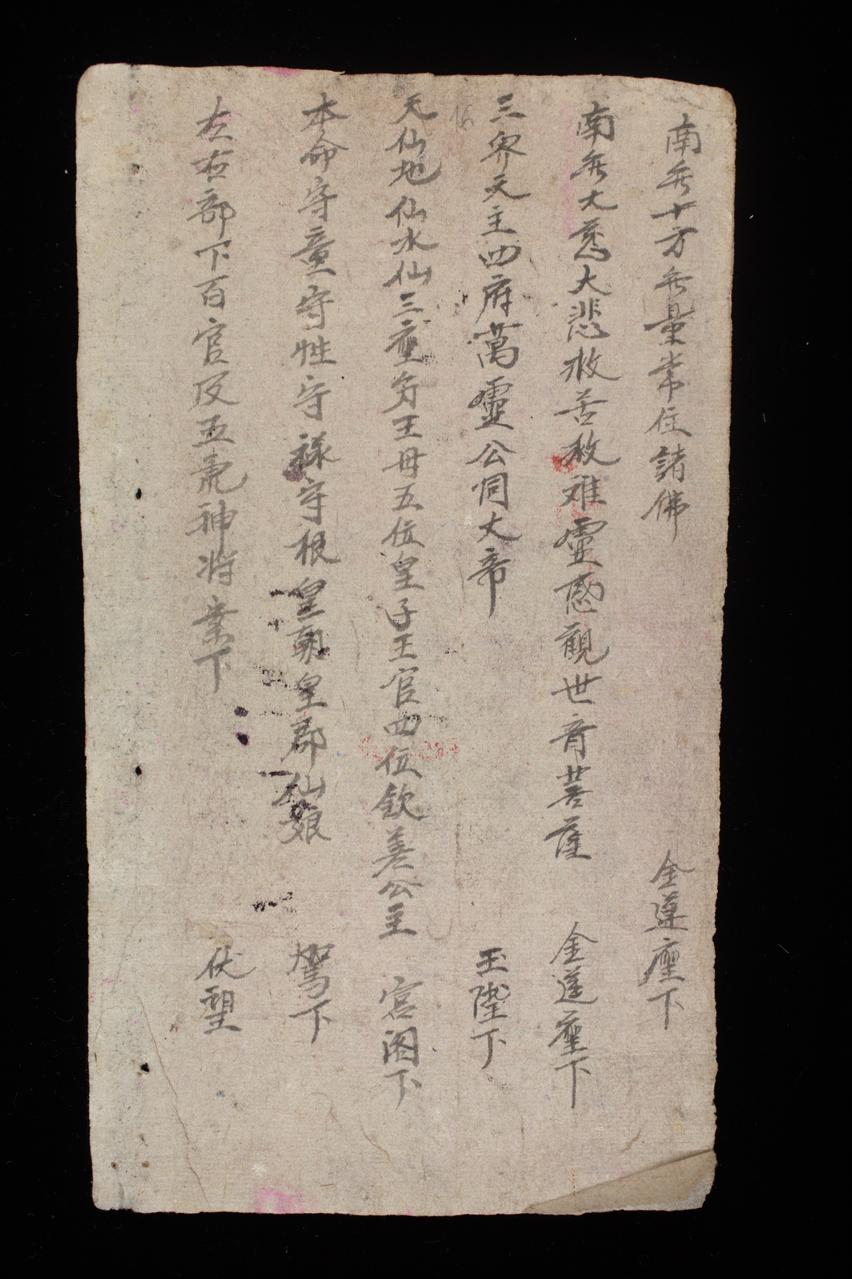 南無十方無量常住諸佛 金蓮座下
南無大慈大悲救苦救难靈感觀世音菩薩 金蓮座下
三界天主四府萬靈公同大帝 玉陛下
天仙地仙水仙三座身王母五位皇子王官四位欽差公主 宮闕下
本命守童守性守禄守根皇朝皇郡仙娘 駕下
左右部下百官及五虎神将案下 伏望
16